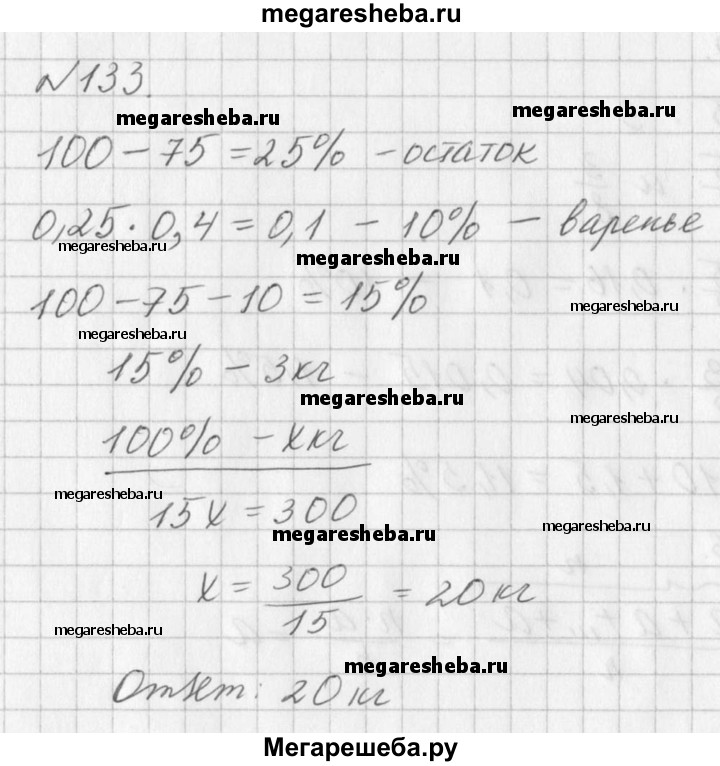 megaresheba.ru
№133.
megaresheba.ru
megaresheba.ru
100 - 75 = 25% - остаток
0,25 · 0,4 = 0,1 - 10% - варенье
megaresheba.ru
megaresheba.ru
100 - 75 - 10 = 15%
megaresheba.ru
megaresheba.ru
15% - 3кг
megaresheba.ru
megaresheba.ru
100% - xкг
megaresheba.ru
15x = 300
megaresheba.ru
megaresheba.ru
x = 300/15 = 20кг
megaresheba.ru
megaresheba.ru
Ответ: 20кг
Мегарешеба.ру